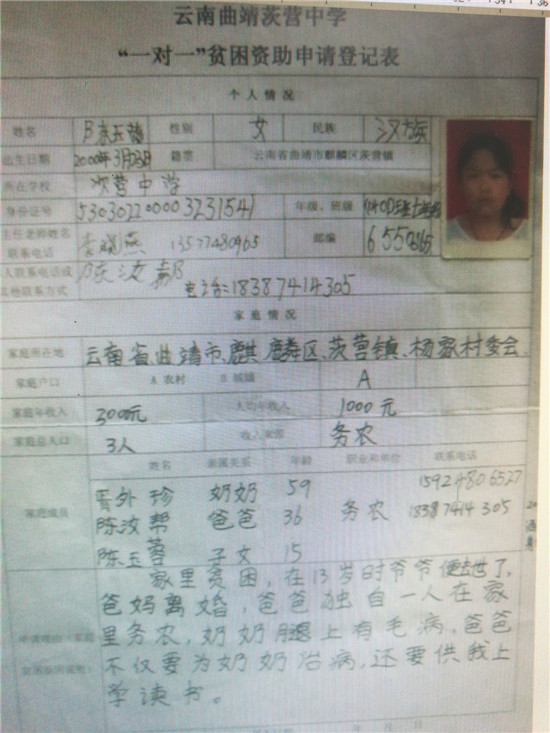 云南曲靖茨营中学
“一对一”贫困资助申请登记表
个人情况
姓名 陈玉蓉 性别 女 民族 汉族
出生日期 2000年3月23日 籍贯 云南省曲靖市麒麟区茨营镇
所在学校 茨营中学
身份证号 530302200003231541 年级、班级
主任老师姓名 李晓燕
联系电话 13577480965 邮编
人联系电话或 陈汝帮
其他联系方式 电话:18387414305
家庭情况
家庭所在地 云南省、曲靖市、麒麟区、茨营镇、杨家村委会
家庭户口 A 农村 B 城镇 A
家庭年收入 3000元 人均年收入 1000元
家庭总人口 3人 收入来源 务农
姓名 亲属关系 年龄 职业和单位 联系电话
外珍 奶奶 59 15924806527
家庭成员 陈汝帮 爸爸 36 务农 18387414305
陈玉蓉 子女 15
家里贫困,在13岁时爷爷便去世了,
爸妈离婚,爸爸独自一人在家
里务农,奶奶腿上有毛病,爸爸
不仅要为奶奶治病,还要供我上
学读书。